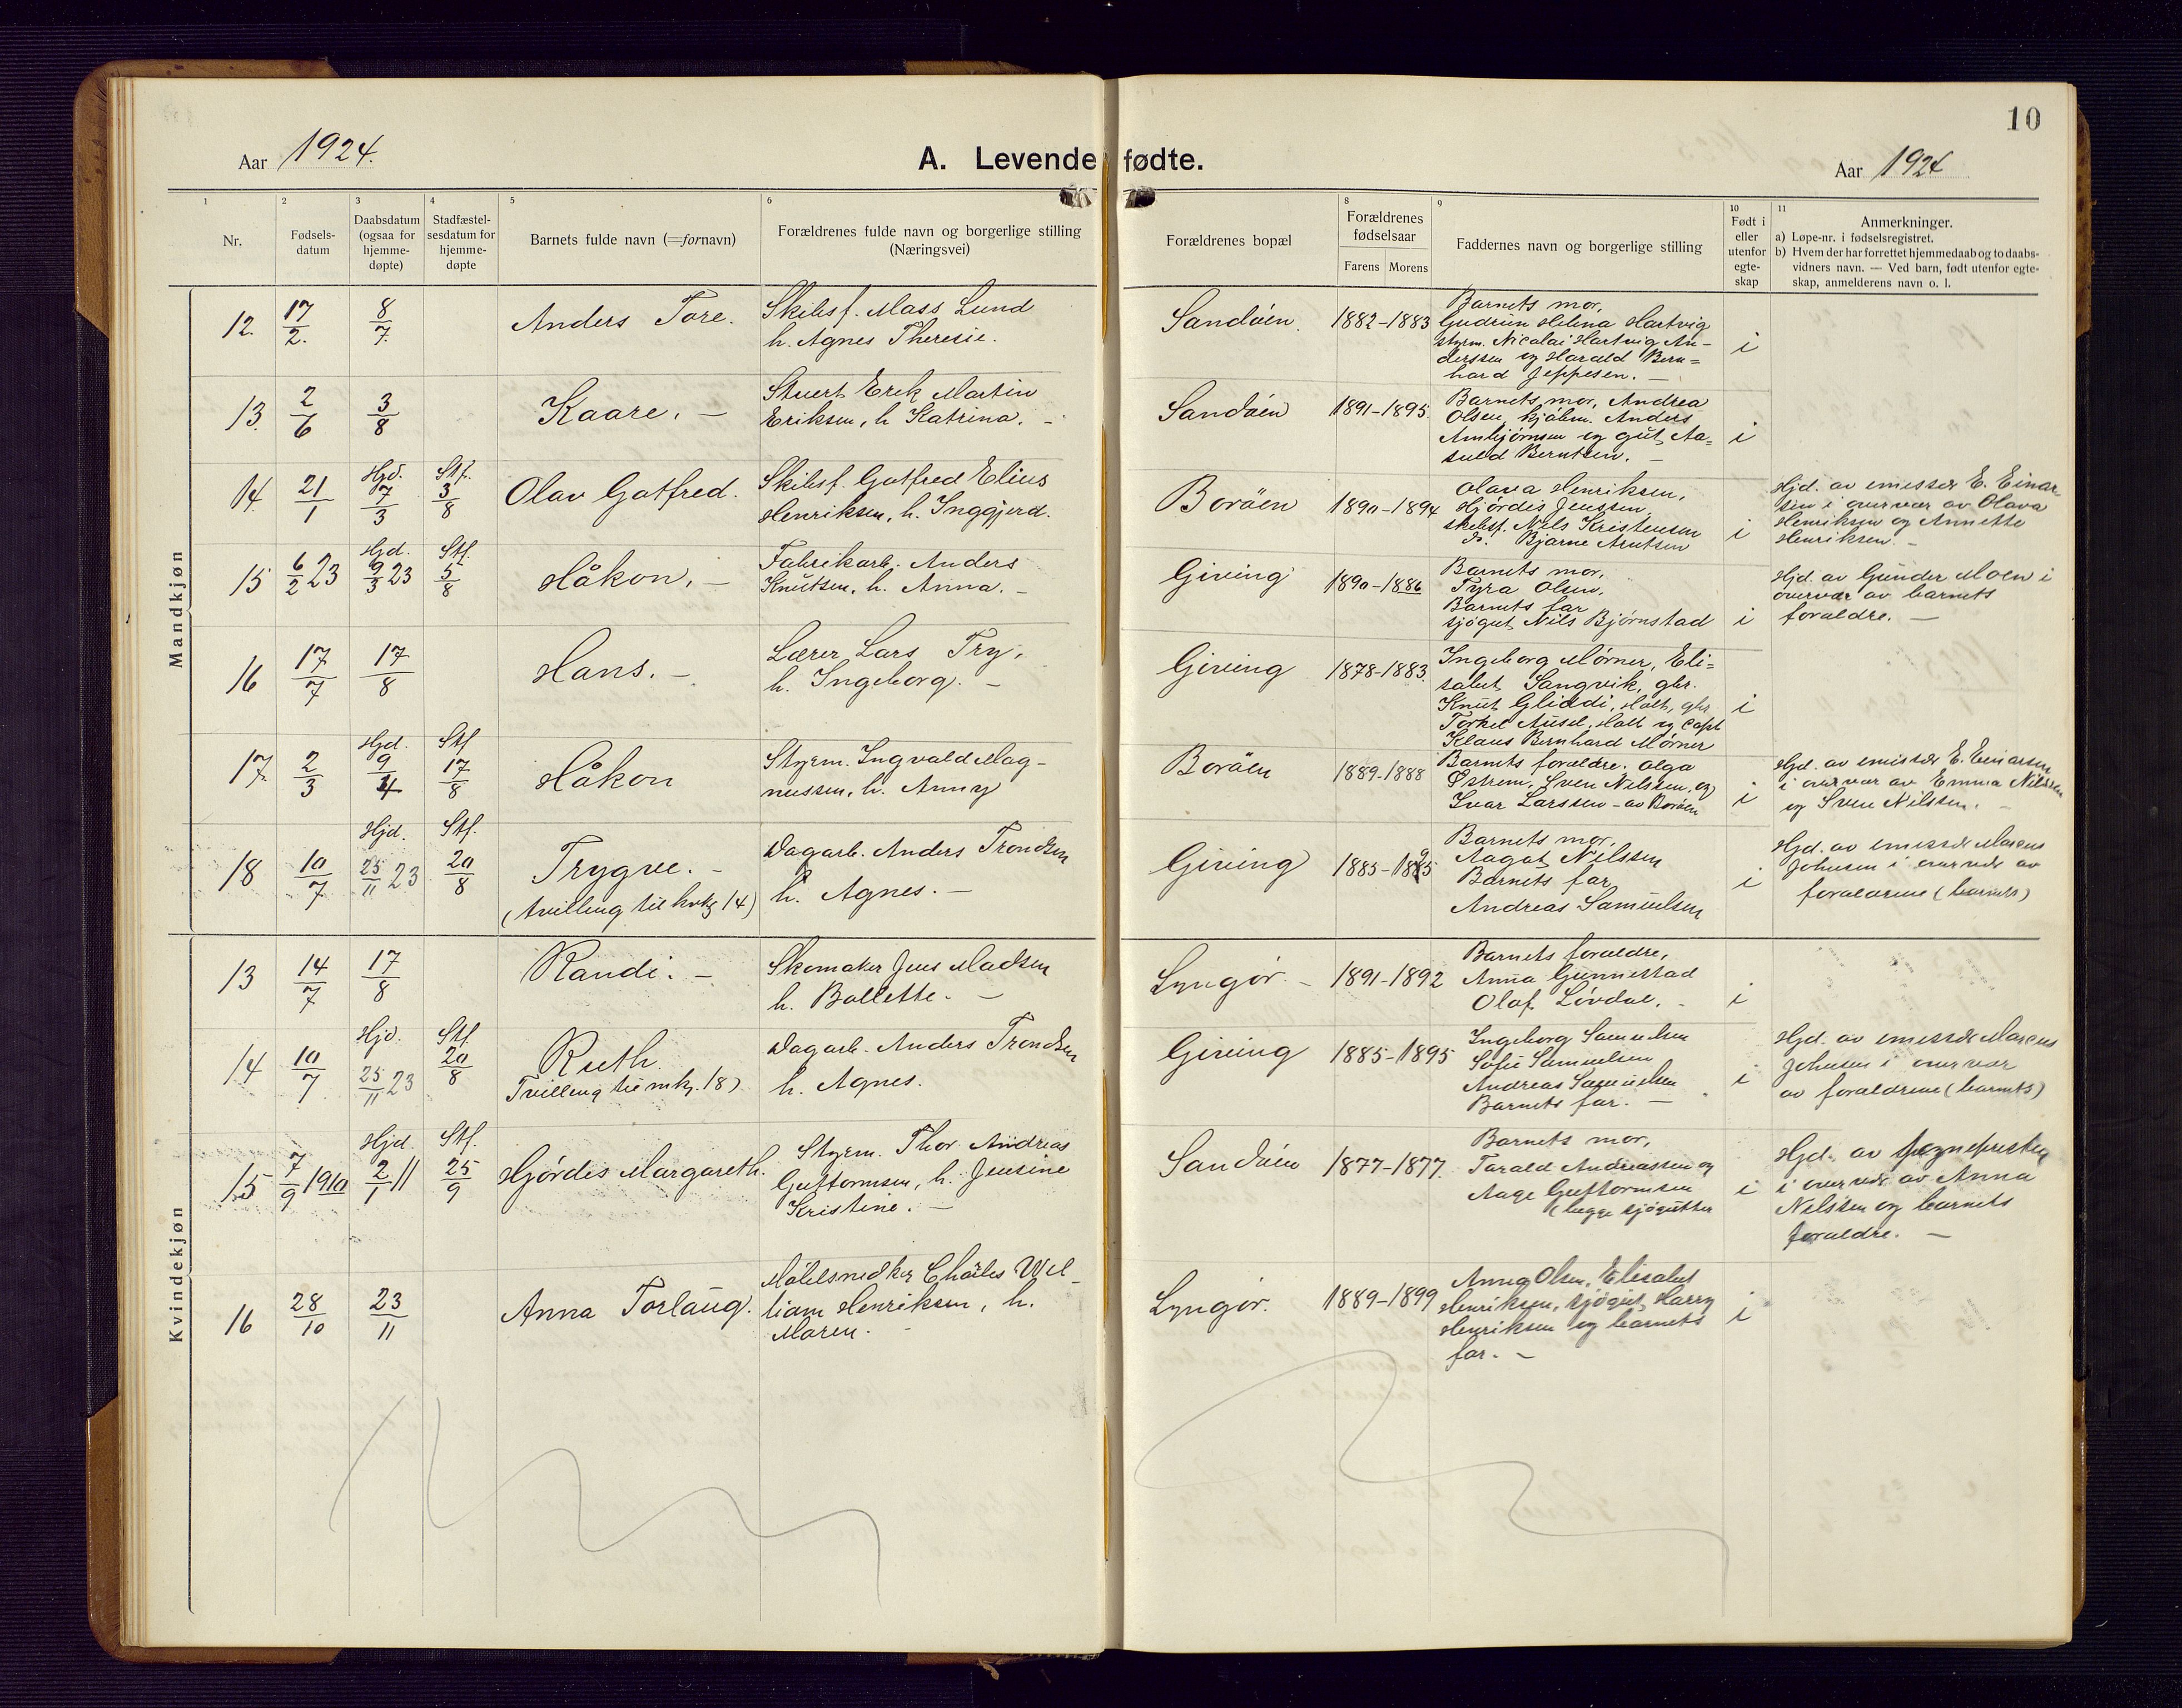 10
Aar 1924.
A. Levende fødte.
Aar 1924
1 2 3 4 5 6 8 9 10 11
Nr.
Fødsels-
datum
Daabsdatum
(ogsaa for
hjemme-
døpte)
Stadfæstel-
sesdatum for
hjemme-
døpte
Barnets fulde navn (=fornavn)
Forældrenes fulde navn og borgerlige stilling
(Næringsvei)
Forældrenes bopæl
Forældrenes
fødselsaar
Farens Morens
Faddernes navn og borgerlige stilling
Født i
eller
utenfor
egte-
skap
Anmerkninger.
a) Løpe-nr. i fødselsregistret.
b) Hvem der har forrettet hjemmedaab og to daabs-
vidners navn. — Ved barn, født utenfor egte-
skap, anmelderens navn o. l.
Mandkjøn
12. 17/2. 8/7.
Anders Tore.
Skibsf. Mass Lund
h. Agnes Theresie.
Sandøen.
1882-1883
Barnets mor,
Gudrun Helena Hartvig
styrm. Nicolai Hartvig An-
derssen og Harald Bern=
hard Jeppesen. —
i
13. 2/6 3/8
Kaare. —
Stuert Erik Martin
Eriksen, h. Katrina. -
Sandøen
1891-1895.
Barnets mor, Andrea
Olsen, kjøbm. Anders
Arnbjørnsen og gut Aa=
suld Berntsen. —
i
14. 21/1 Hjd. 7/3 Stf. 3/8
Olav Gotfred.
Skibsf. Gotfred Elius
Henriksen, h. Inggjerd.
Borøen
1890-1894
Olava Henriksen,
Hjørdis Jenssen,
skibsf. Nils Kristensen
do. Bjarne Arntsen
i
Hjd. av emissær E. Einar-
sen i overvær av Olava
Henriksen og Annette
Henriksen. —
15 6/2 23 Hjd. 9/3 23 Stf. 5/8
Håkon. —
Fabrikarb. Anders
Knutsen, h. Anna. —
Giving
1890-1886
Barnets mor,
Tyra Olsen,
Barnets far
sjøgut Nils Bjørnstad
i
Hjd. av Gunder Moen i
overvær av barnets
forældre. —
16 17/7 17/8
Hans. —
Lærer Lars Try,
h. Ingeborg. —
Giving
1878-1883.
Ingeborg Mørner, Eli=
sabet Sangvik, gbr.
Knut Gliddi, Holt, gbr
Torkel Ausel, Holt og Capt
Klaus Bernhard Mørner
i
17. 2/3 Hjd. 9/4 Stf 17/8
Håkon
Styrm. Ingvald Mag-
nussen, h. Anny
Borøen
1889-1888
Barnets forældre. Olga
Østrem, Sven Nilssen, og
Ivar Larssen - av Borøen
i
Hjd. av emissær E. Einarsen
i overvær av Emma Nilssen
og Sven Nilssen. —
18 10/7 Hjd. 25/11 23 Stf. 20/8
Trygve. -
(tvilling til kvkj 14)
Dagarb. Anders Trondsen
h. Agnes. —
Giving
1885-1895
Barnets mor,
Aagot Nilssen
Barnets far
Andreas Samuelsen
i
Hjd. av emissær Marcus
Johnsen i overvær av
forældrene (barnets)
Kvindekjøn
13 14/7 17/8
Randi. —
Skomaker Jens Madsen
h. Bollette. —
Lyngør. -
1891-1892
Barnets forældre,
Anna Gunnestad
Olaf Løvdal. -
i
14 10/7 Hjd. 25/11 23 Stf 20/8
Ruth.
Tvilling til mkj. 18)
Dagarb. Anders Trondsen
h. Agnes.
Giving
1885-1895
Ingeborg Samuelsen
Sofie Samuelsen
Andreas Samuelsen
Barnets far. —
i
Hjd. av emissær Marcus
Johnsen i overvær
av forældrene (barnets)
15 7/9 1910 Hjd. 2/1 11 Stf. 25/9
Hjørdis Margareth.
Styrm. Thor Andreas
Guttormsen, h. Jensine
Kristine. —
Sandøen
1877-1877.
Barnets mor,
Tarald Andreassen og
Aage Guttormsen
(begge sjøgutter
i
Hjd. av sognepresten
i overvær av Anna
Nilsen og barnets
forældre. —
16 28/10 23/11
Anna Torlaug.
Møbelsnedker Charles Wil-
liam Henriksen, h.
Maren. -
Lyngør.
1889-1899
Anna Olsen, Elisabet
Henriksen, sjøgut Harry
Henriksen og barnets
far. —
i